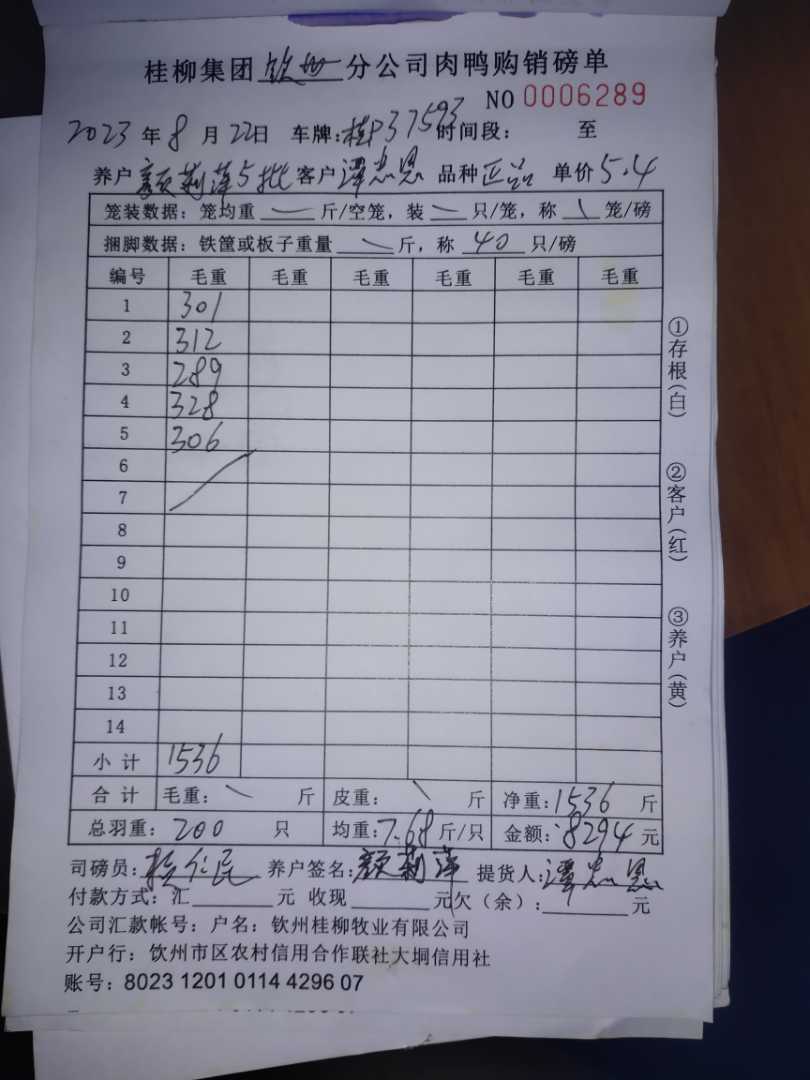 桂柳集团钦州分公司肉鸭购销磅单
NO 0006289
2023 年 8 月 22日 车牌:桂P37593 时间段: 至
养户 颜莉萍5批 客户 谭忠恩 品种 正品 单价 5.4
笼装数据: 笼均重 斤/空笼, 装 只/笼, 称 笼/磅
捆脚数据: 铁筐或板子重量 斤, 称 40 只/磅
编号 毛重 毛重 毛重 毛重 毛重 毛重
1 301
2 312
3 289
4 328
5 306
6
7
8
9
10
11
12
13
14
小计 1536
合计 毛重: 斤 皮重: 斤 净重: 1536 斤
总羽重: 200 只 均重: 7.68 斤/只 金额: 8294 元
司磅员: 仁民 养户签名: 颜莉萍 提货人: 谭忠恩
付款方式: 汇 元 收现 元欠(余): 元
公司汇款帐号: 户名: 钦州桂柳牧业有限公司
开户行: 钦州市区农村信用合作联社大垌信用社
账号: 8023 1201 0114 4296 07
①存根(白)
②客户(红)
③养户(黄)